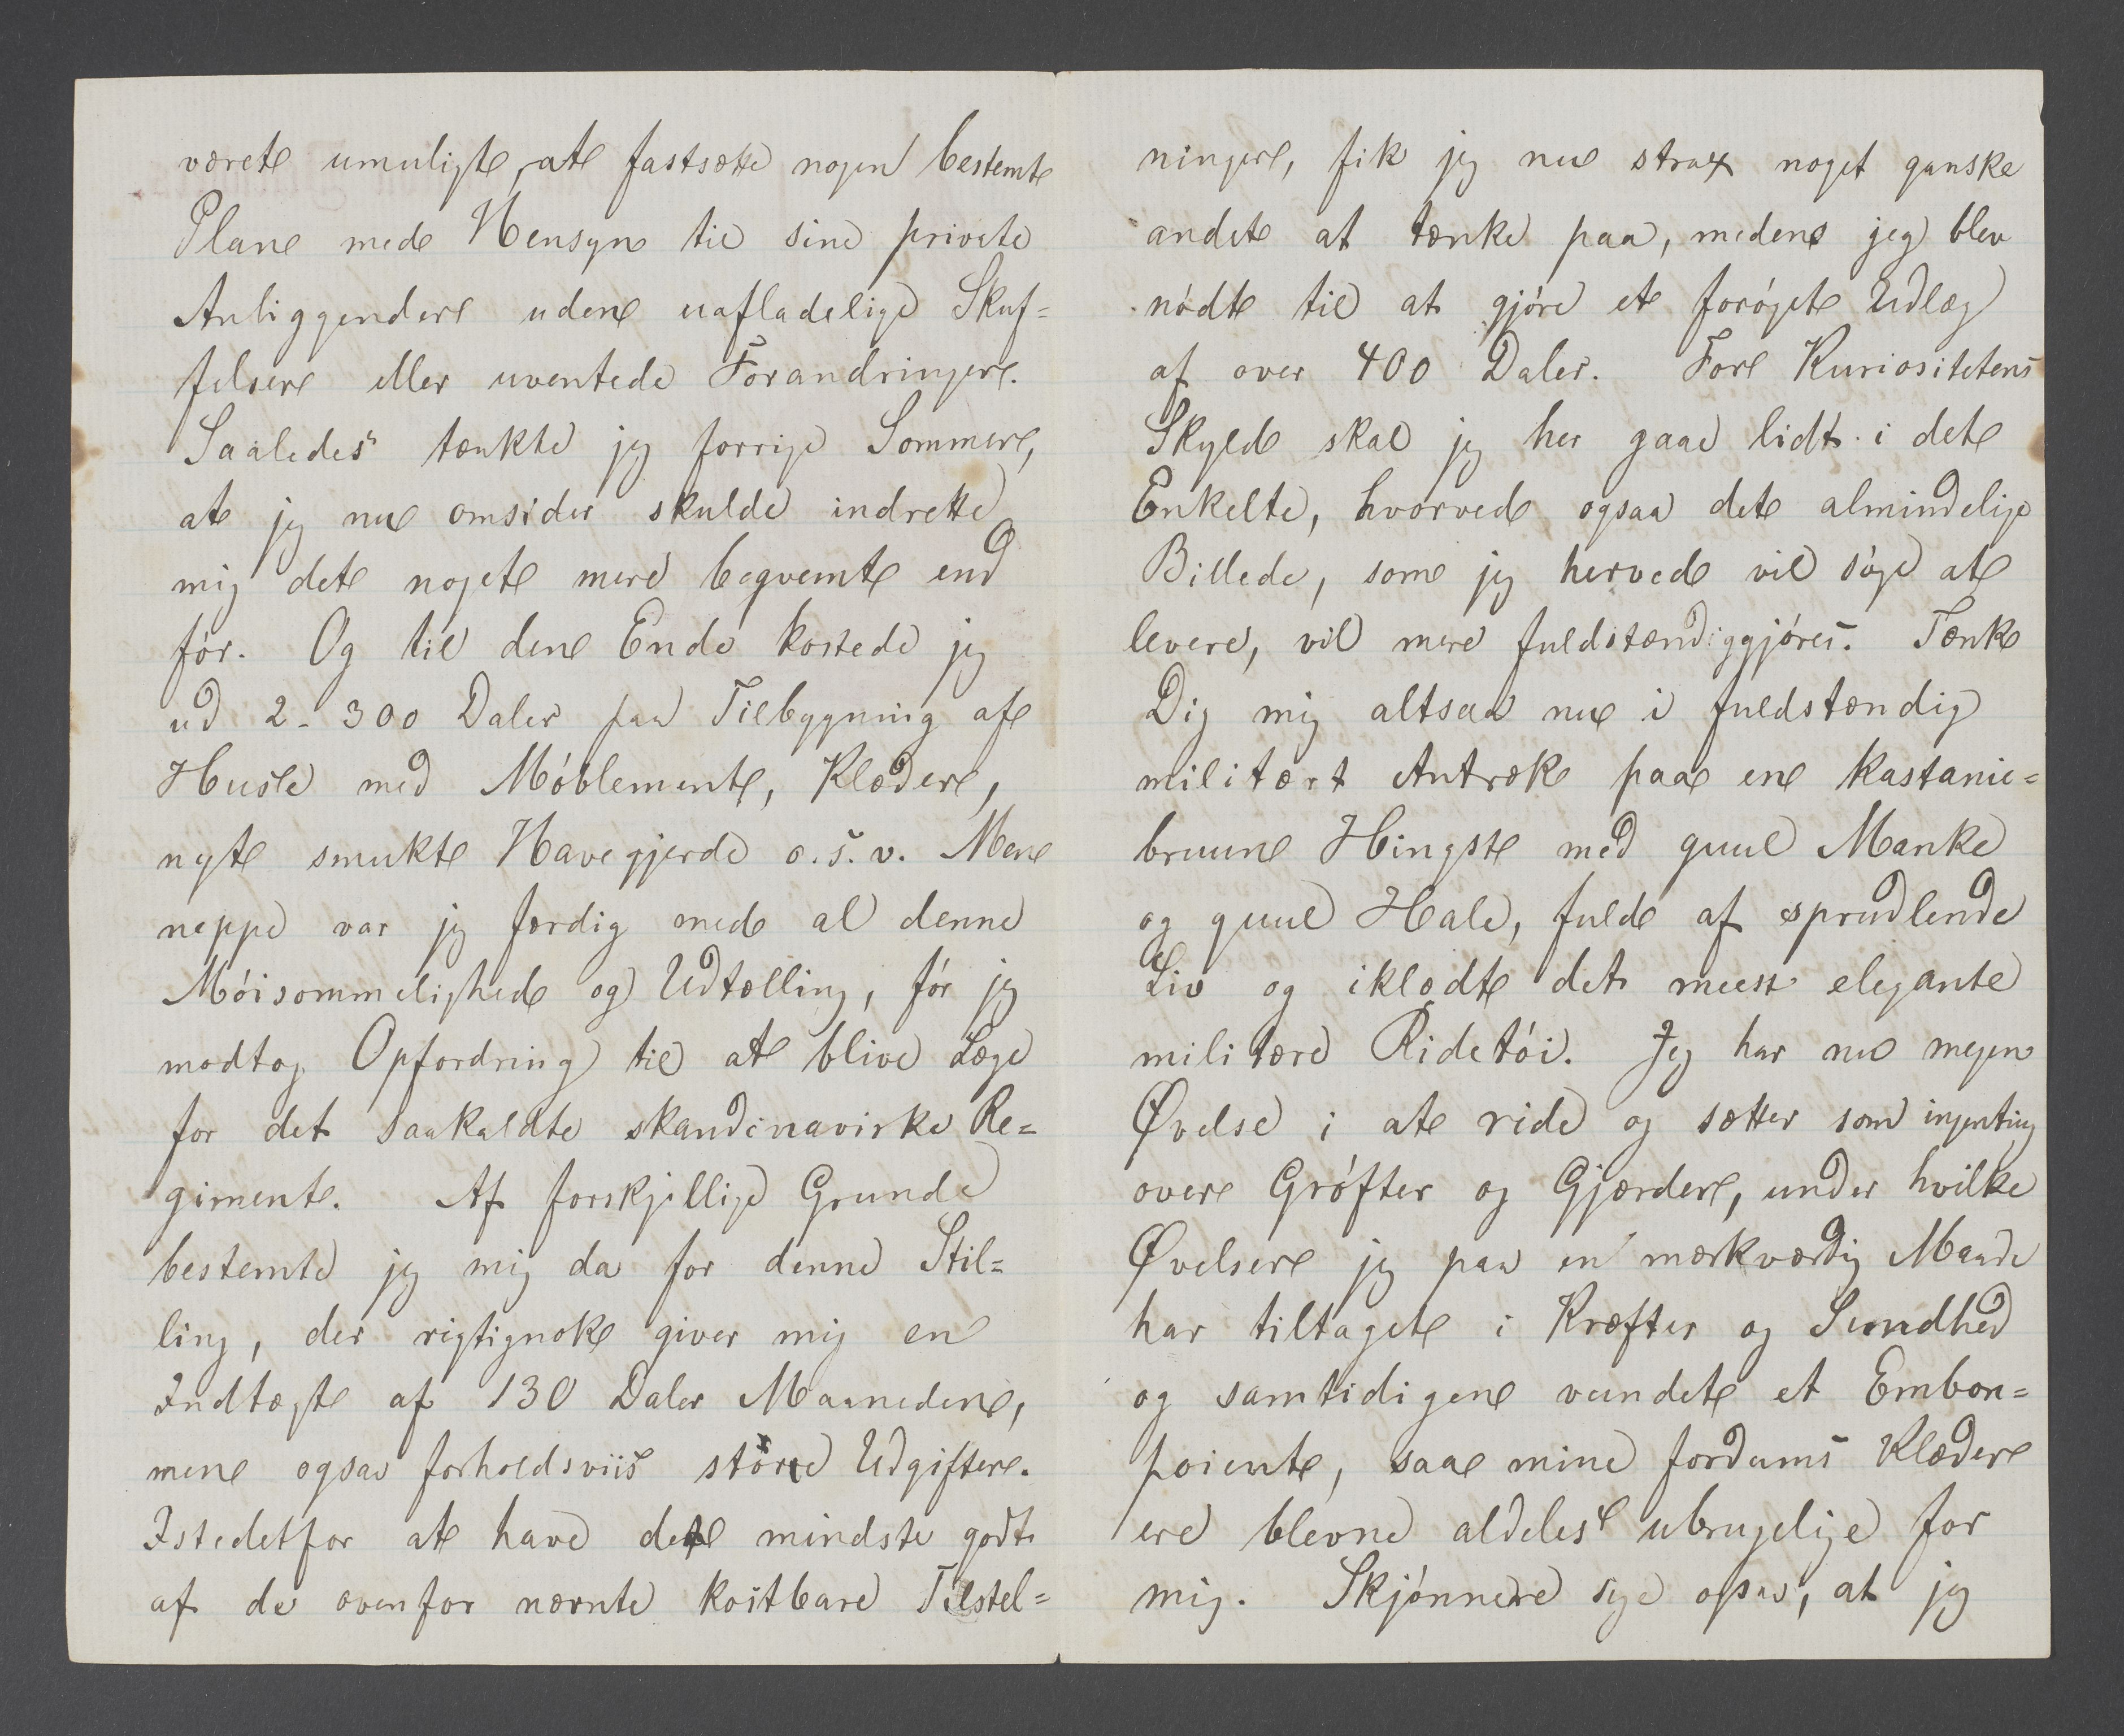 været umuligt, at fastsætte nogen bestemt
Plan med Hensyn til sine private
Anliggender uden uafladelige Skuf=
felser eller uventede Forandringer.
Saaledes tænkte jeg forrige Sommer,
at jeg nu omsider skulde indrette
mig det noget mere beqvemt end
før. Og til den Ende kostede jeg
ud 2-300 Daler paa Tilbygning af
Huset med Møblement, Klæder,
nyt smukt Havegjerde o.s.v. Men
neppe var jeg færdig med al denne
Møisommelighed og Udtælling, før jeg
modtog Opfordring til at blive Læge
for det saakaldte skandinaviske Re=
giment. Af forskjellige Grunde
bestemte jeg mig da for denne Stil=
ling, der rigtignok giver mig en
Indtægt af 130 Daler Maaneden,
men ogsaa forholdsviis større Udgifter.
Istedetfor at have det mindste godt
af de ovenfor nævnte kostbare Tilstel=
ninger, fik jeg nu strax noget ganske
andet at tænke paa, medens jeg blev
nødt til at gjøre et forøget Udlæg
af over 400 Daler. For Kuriositetens
Skyld skal jeg her gaae lidt i det
Enkelte, hvorved ogsaa det almindelige
Billede, som jeg herved vil søge at
levere, vil mere fuldstændiggjøres. Tænk
Dig mig altsaa nu i fuldstændig
militært Antræk paa en kastanie=
bruun Hingst med guul Manke
og guul Hale, fuld af sprudlende
Liv og iklædt det meest elegante
militære Ridetøi. Jeg har nu megen
Øvelse i at ride og sætter som ingenting
over Grøfter og Gjærder, under hvilke
Øvelser jeg paa en mærkværdig Maade
har tiltaget i Kræfter og Sundhed
og samtidigen vundet et Embon=
point, saa mine fordums Klæder
ere blevne aldeles ubrugelige for
mig. Skjønnere sige ogsaa, at jeg